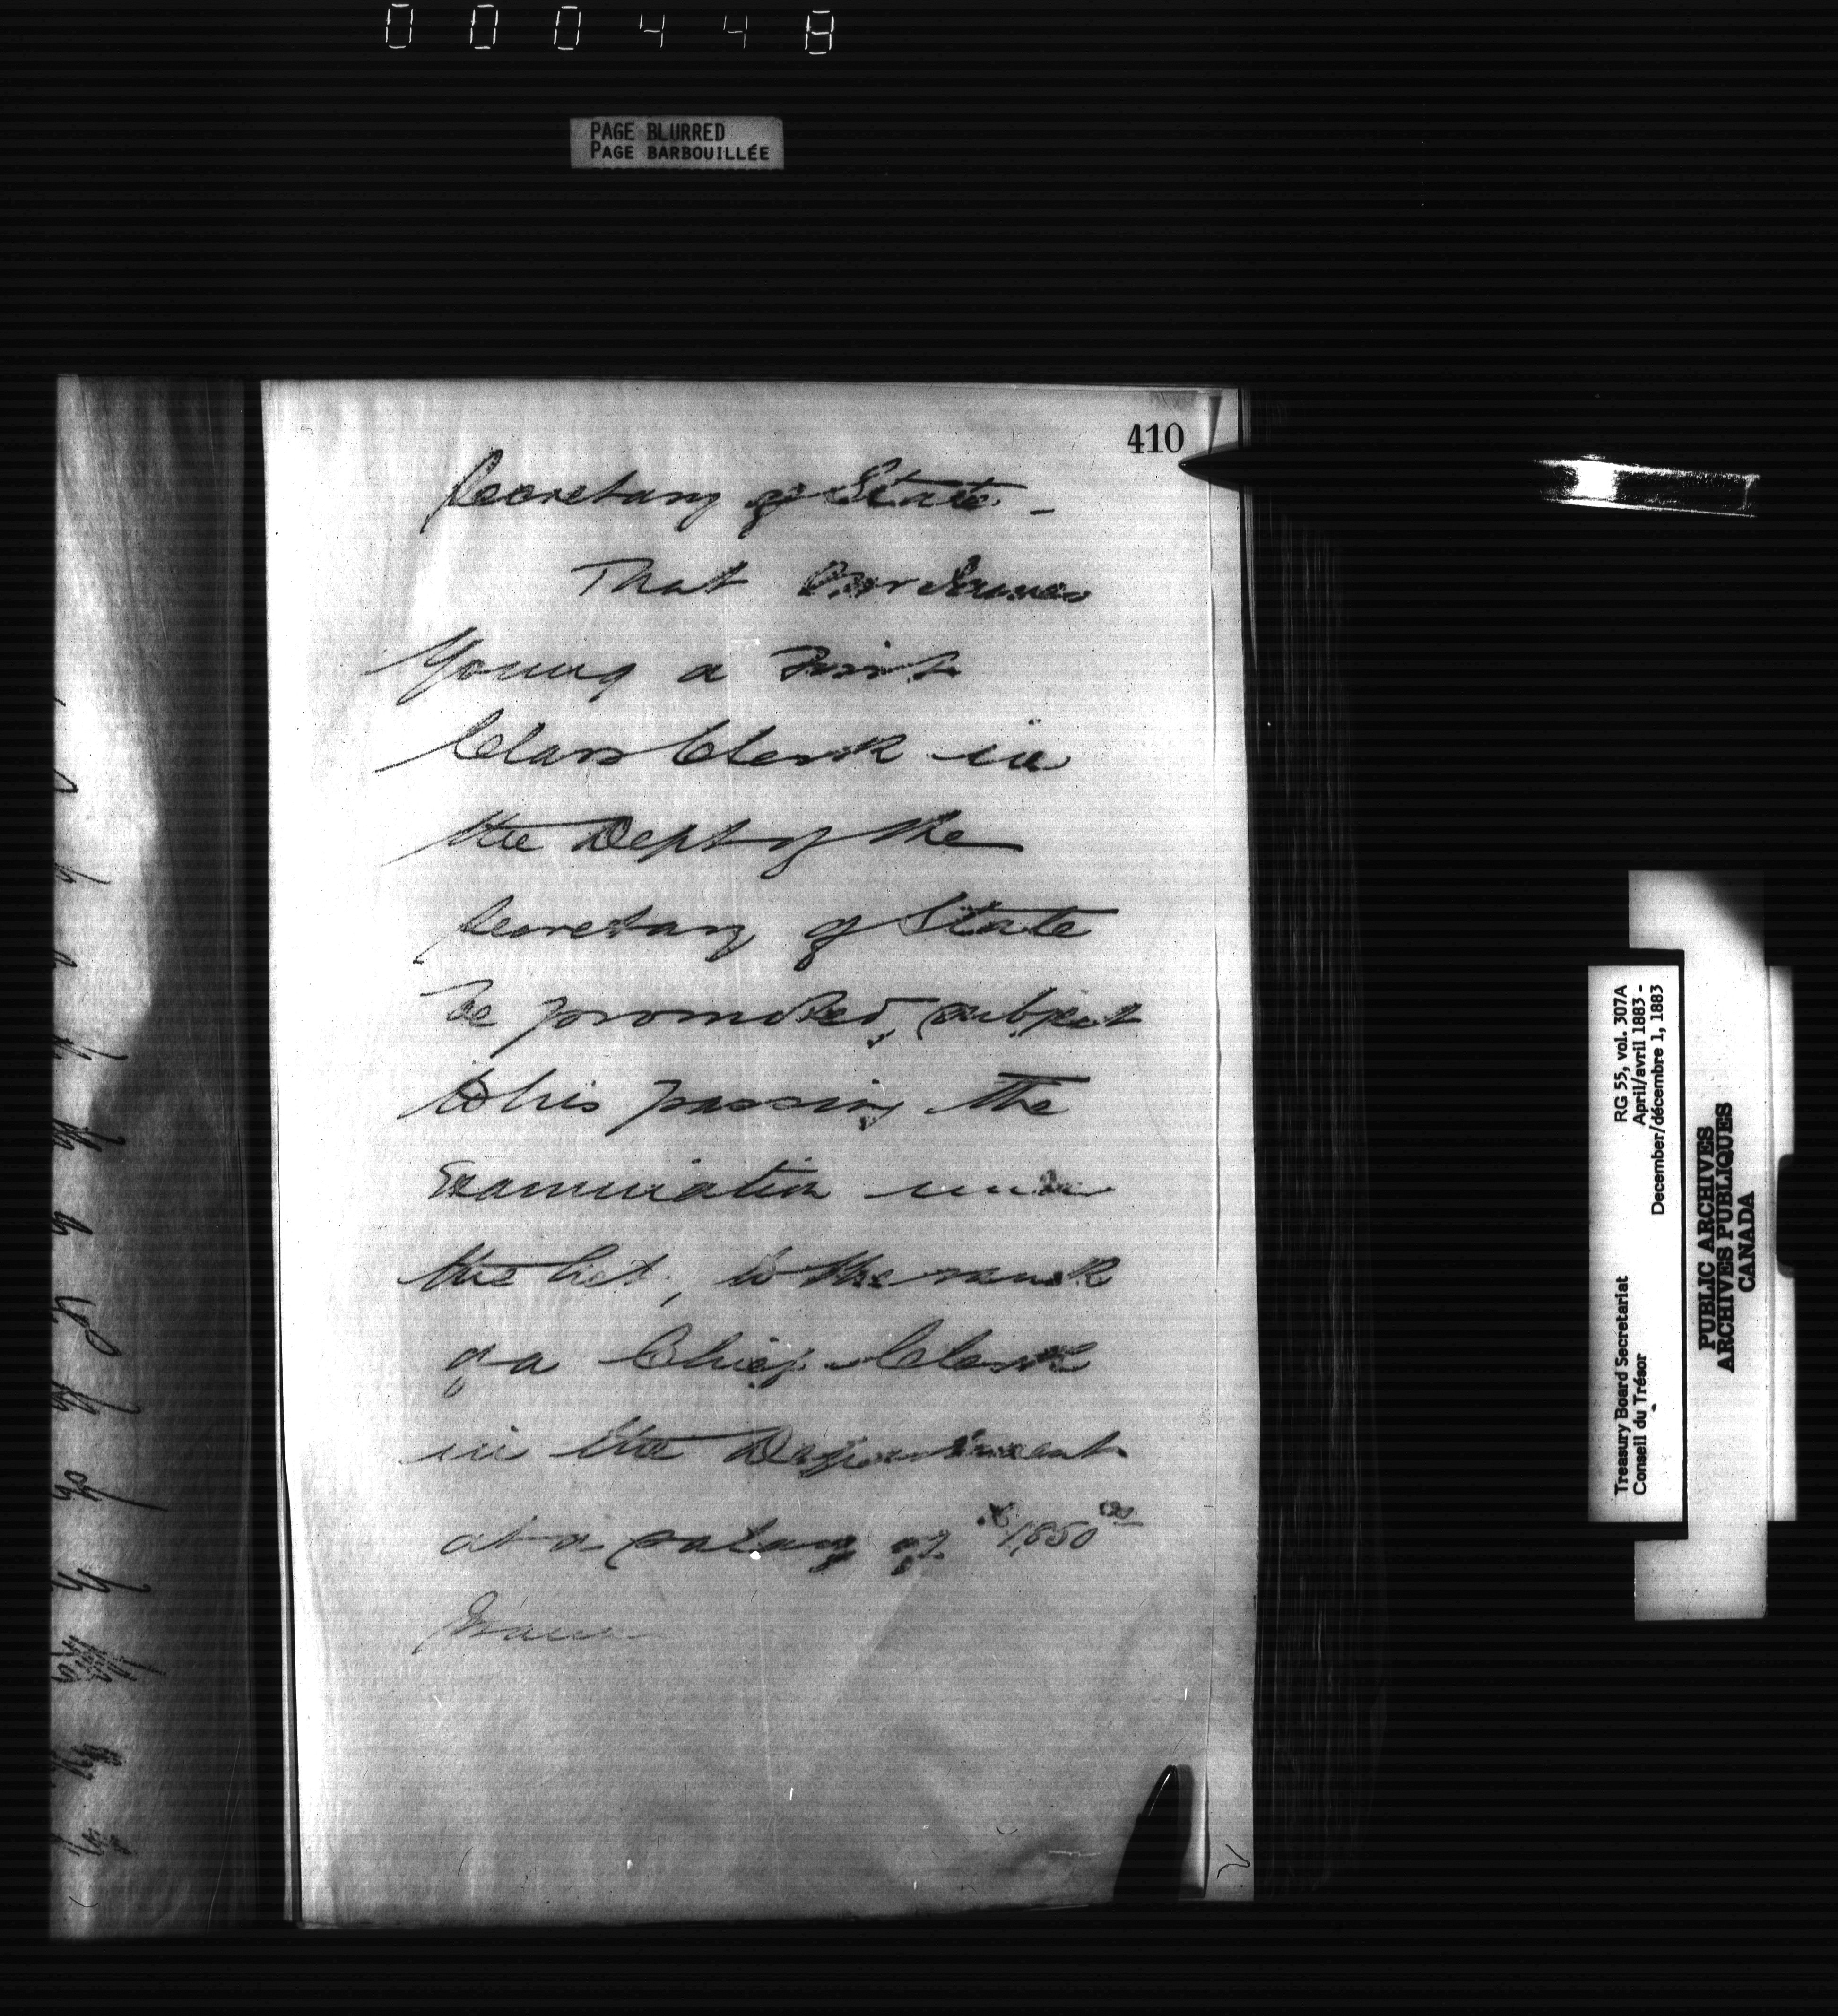 000448
PAGE BLURRED
PAGE BARBOUILLÉE
410
Secretary of State -
That
Young a First
Class Clerk in
the Dept of the
Secretary of State
be promoted, subject
to his passing the
Examination under
the Act, to the rank
of a Chief Clerk
in the Department
at a salary of $1,850 00
Treasury Board Secretariat
Conseil du Trésor
RG 55, vol. 307A
April/avril 1883 -
December/décembre 1, 1883
PUBLIC ARCHIVES
ARCHIVES PUBLIQUES
CANADA